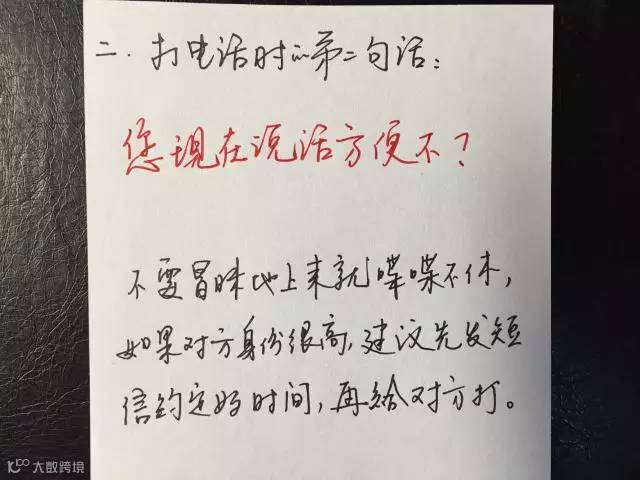 二.打电话时的第二句话：
您现在说话方便不？
不要冒昧地上来就喋喋不休，
如果对方身份很高，建议先发短
信约定好时间，再给对方打。
大数跨境